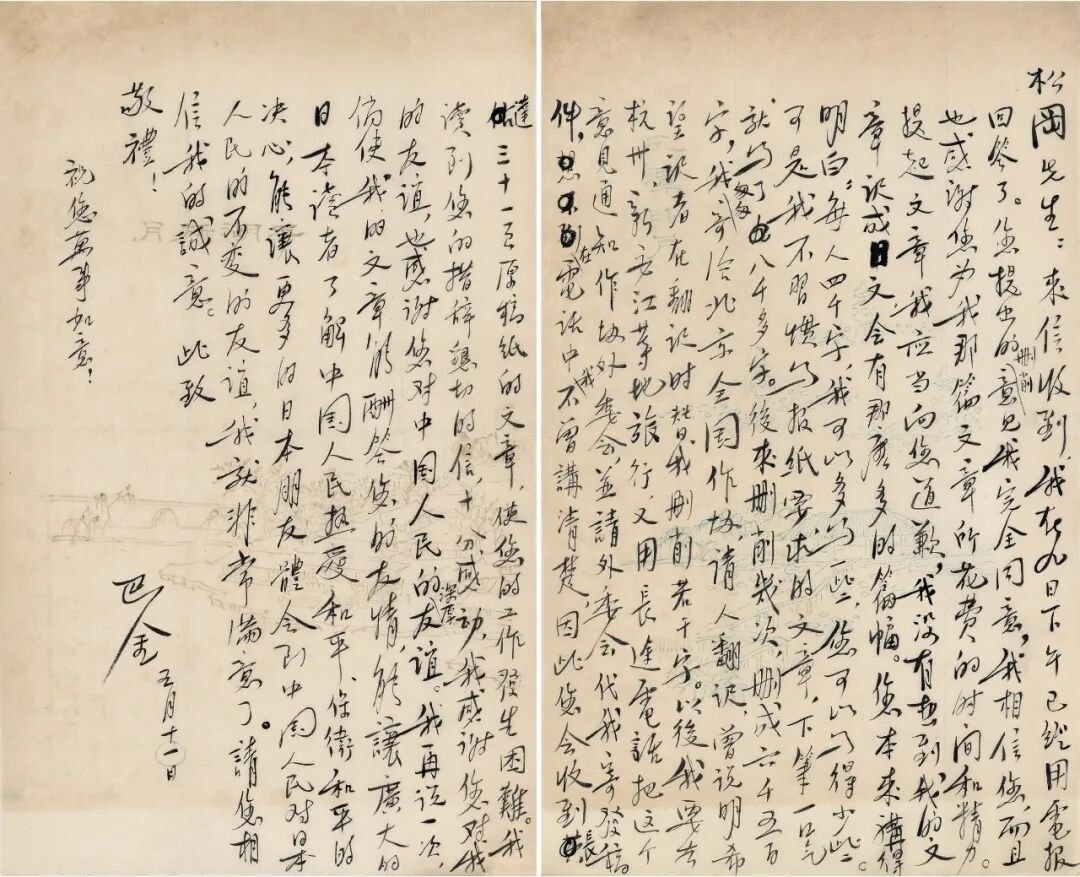 松岡先生：来信收到，我在九日下午已经用電报
回答了。您提出的删削意见我完全同意，我相信您，而且
也感谢您为我那篇文章所花费的时间和精力。
提起文章，我应当向您道歉，我没有想到我的文
章译成日文会有那麽多的篇幅。您本来講得
明白：每人四千字，我可以多写一些，您可以写得少些。
可是我不習惯写报纸要求的文章，下筆一口气
就写了八千多字。後来删削幾次，删成六千五百
字，我寄给北京全国作协，請人翻译，曾说明希
望译者在翻译时替我删削若干字。以後我要去
杭州，新安江等地旅行，又用長途電話把这个
意見通知作协外委会，並請外委会代我寄發稿
件，在電话中我不曾講清楚，因此您会收到長
達三十一页原稿紙的文章，使您的工作發生困難。我
读到您的措辞懇切的信，十分感动，我感谢您对我
的友谊，也感谢您对中国人民的深厚友谊。我再说一次，
倘使我的文章能酬答您的友情，能讓廣大的
日本读者了解中国人民热爱和平、保衛和平的
决心，能讓更多的日本朋友體会到中国人民对日本
人民的不变的友谊，我就非常满意了。請您相
信我的誠意。此致
敬禮！
祝您萬事如意！
巴金
五月十一日